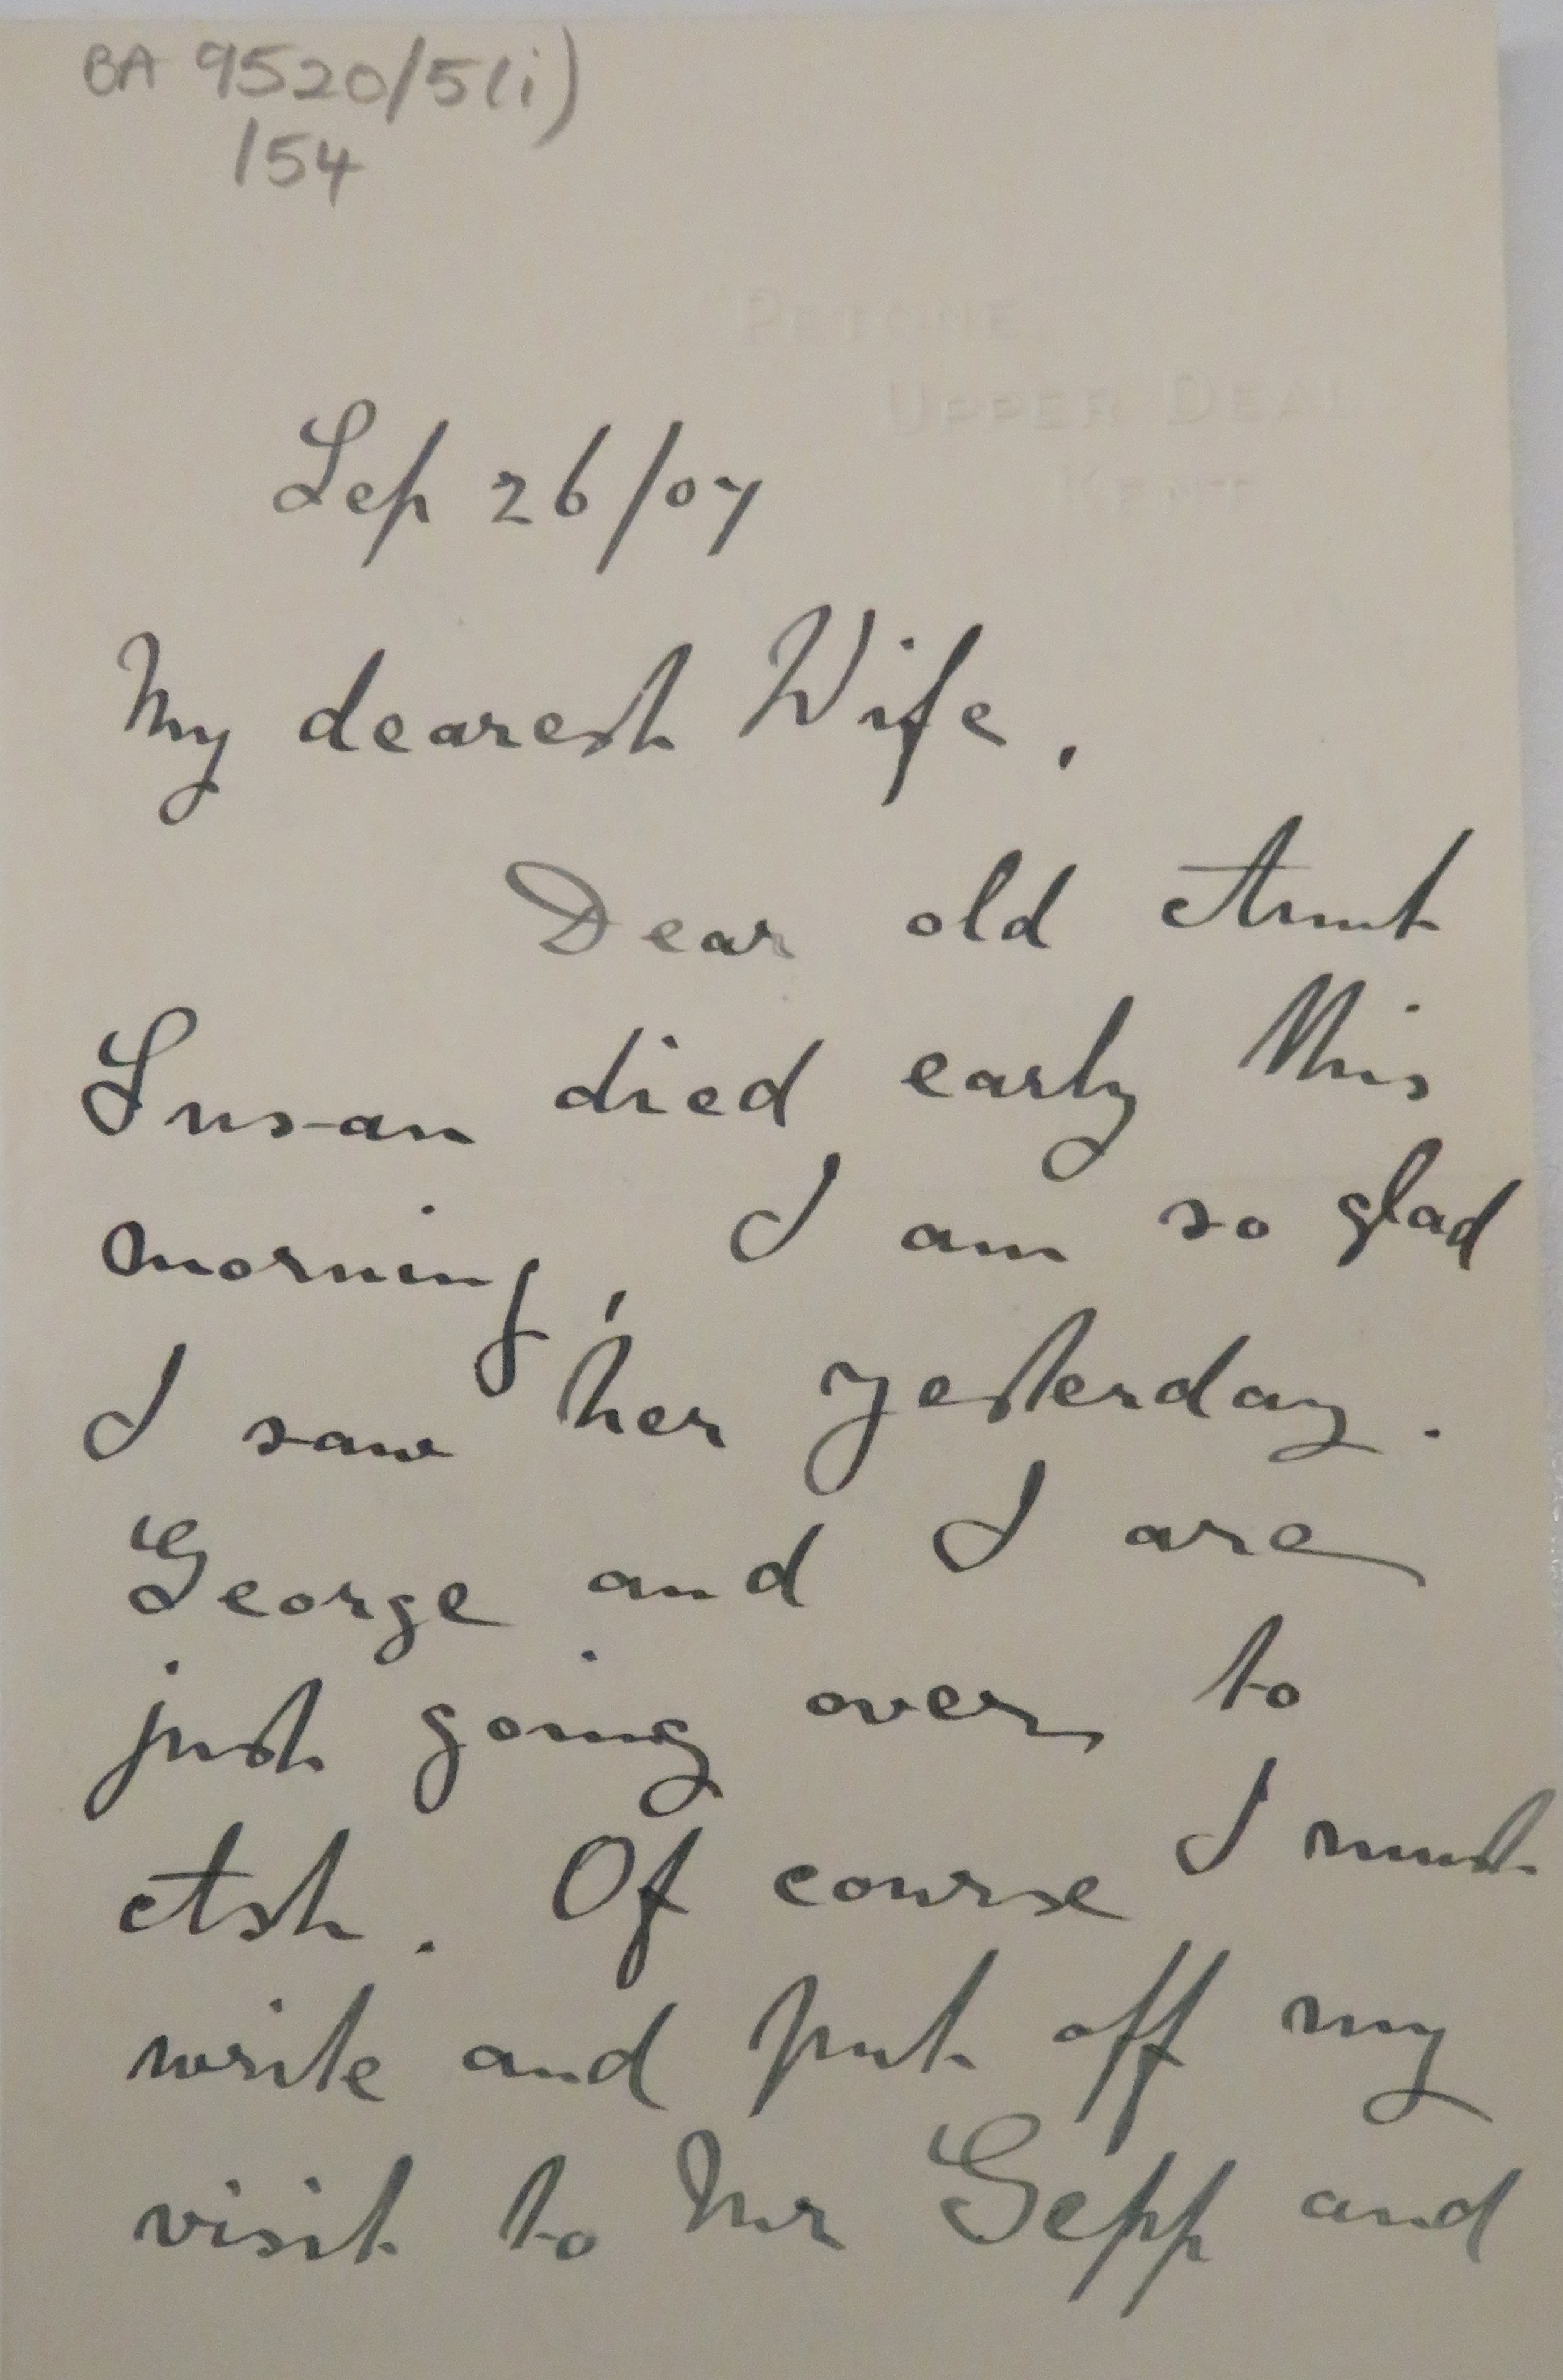 BA 9520/5(i)
154
"PETONE,
UPPER DEAL
KENT
Sep 26/07
My dearest Wife,
Dear old Aunt
Susan died early this
morning, I am so glad
I saw her yesterday.
George and I are
just going over to
Ash. Of course I must
write and put off my
visit to Mr Gepp and